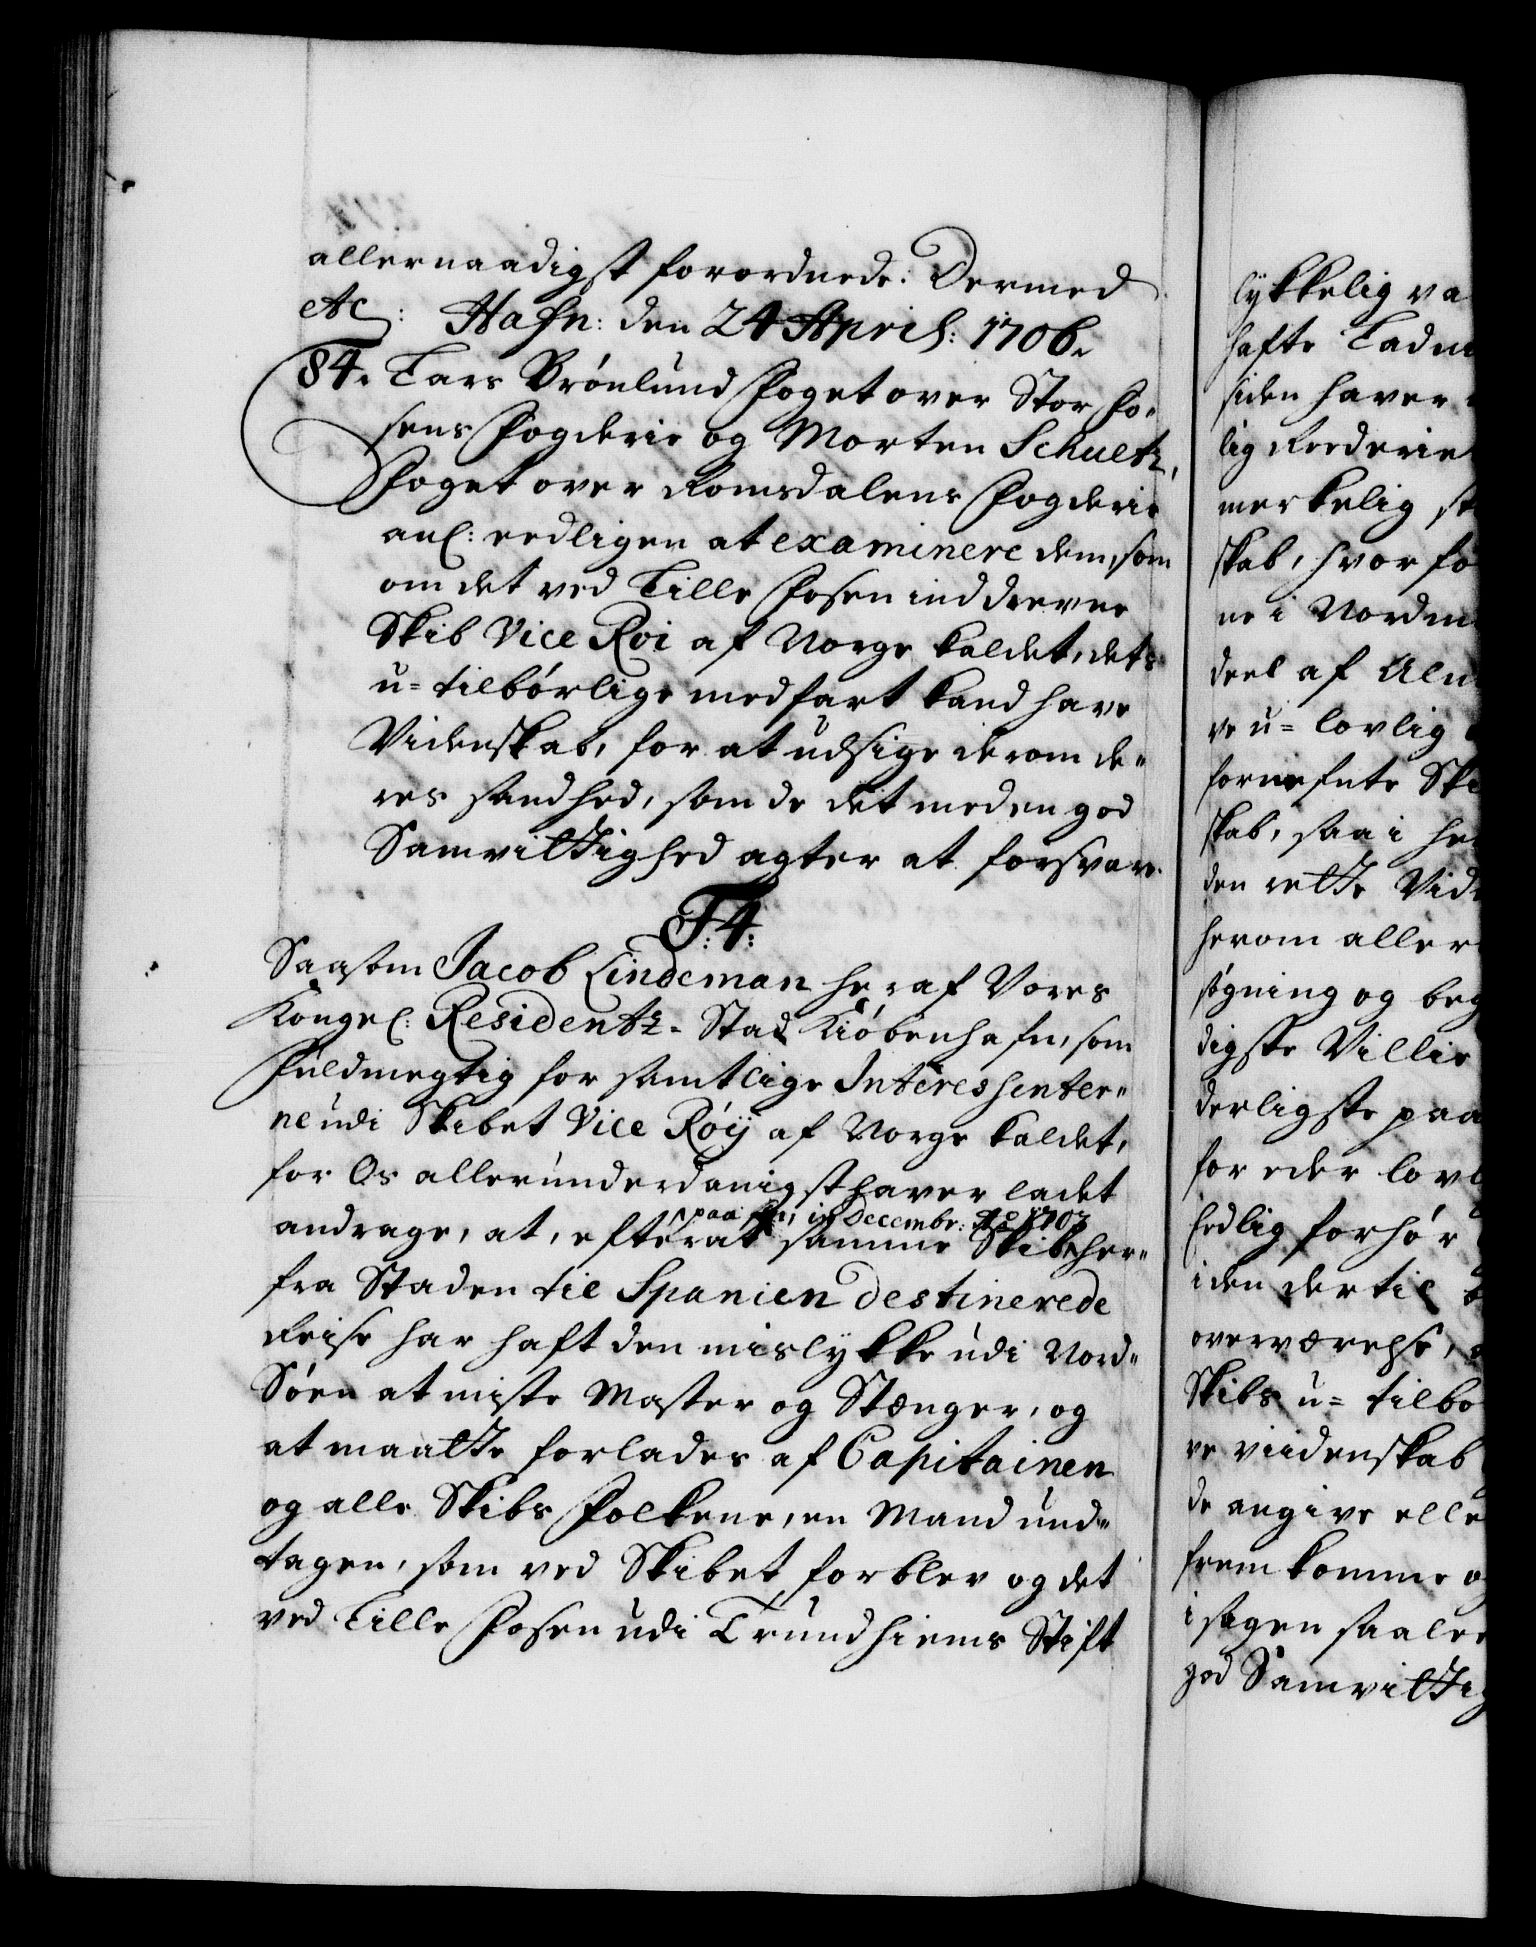 allernaadigst forordnede. Dermed
etc: Hafn: den 24 April: 1706.
84. Lars Brönlund Foget over Stor Fo-
sens Fogderie og Morten Schultz,
Foget over Romsdalens Fogderie
anl: eedligen at examinere dem, som
om det ved Lille Fosen inddrevne
Skib Vice Roi af Norge kaldet, dets
u-tilbörlige medfart kand have
Videnskab, for at udsige derom de-
res sandhed, som de det med en god
Samvittighed agter at forsvare.
F: 4:
Saasom Jacob Lindeman her af Vores
Kongel: Residentz-Stad Kiöbenhafn, som
Fuldmegtig for samtlige Interessenter-
ne udi Skibet Vice Röij af Norge kaldet,
for Os allerunderdanigst haver ladet
andrage, at, efterat samme Skib her-
paa in Decembr: Ao 1703
fra Staden til Spanien destinerede
Reise har haft den mislykke udi Nord-
Söen at miste Master og Stænger, og
at maatte forlades af Capitainen
og alle Skibs Folkene, en Mand und-
tagen, som ved Skibet forblev og det
ved Lille Fosen udi Trundhiems Stift
lykkelig va
hafte Ladn
siden haver
lig Rederie
merkelig
skab, hvor fo
ne i Nordm
deel af Alm
ve u-lovlig
fornefnte Ski
skab, saa i
den rette Vid
herom aller
sögning og beg
digste Villie
derligste paa
for eder lov
hedlig forhör
i den der til
overværelse,
Skibs u-tilbö
ve viidenskab
de angive elle
frem komme o
i sagen saale
god Samvittig